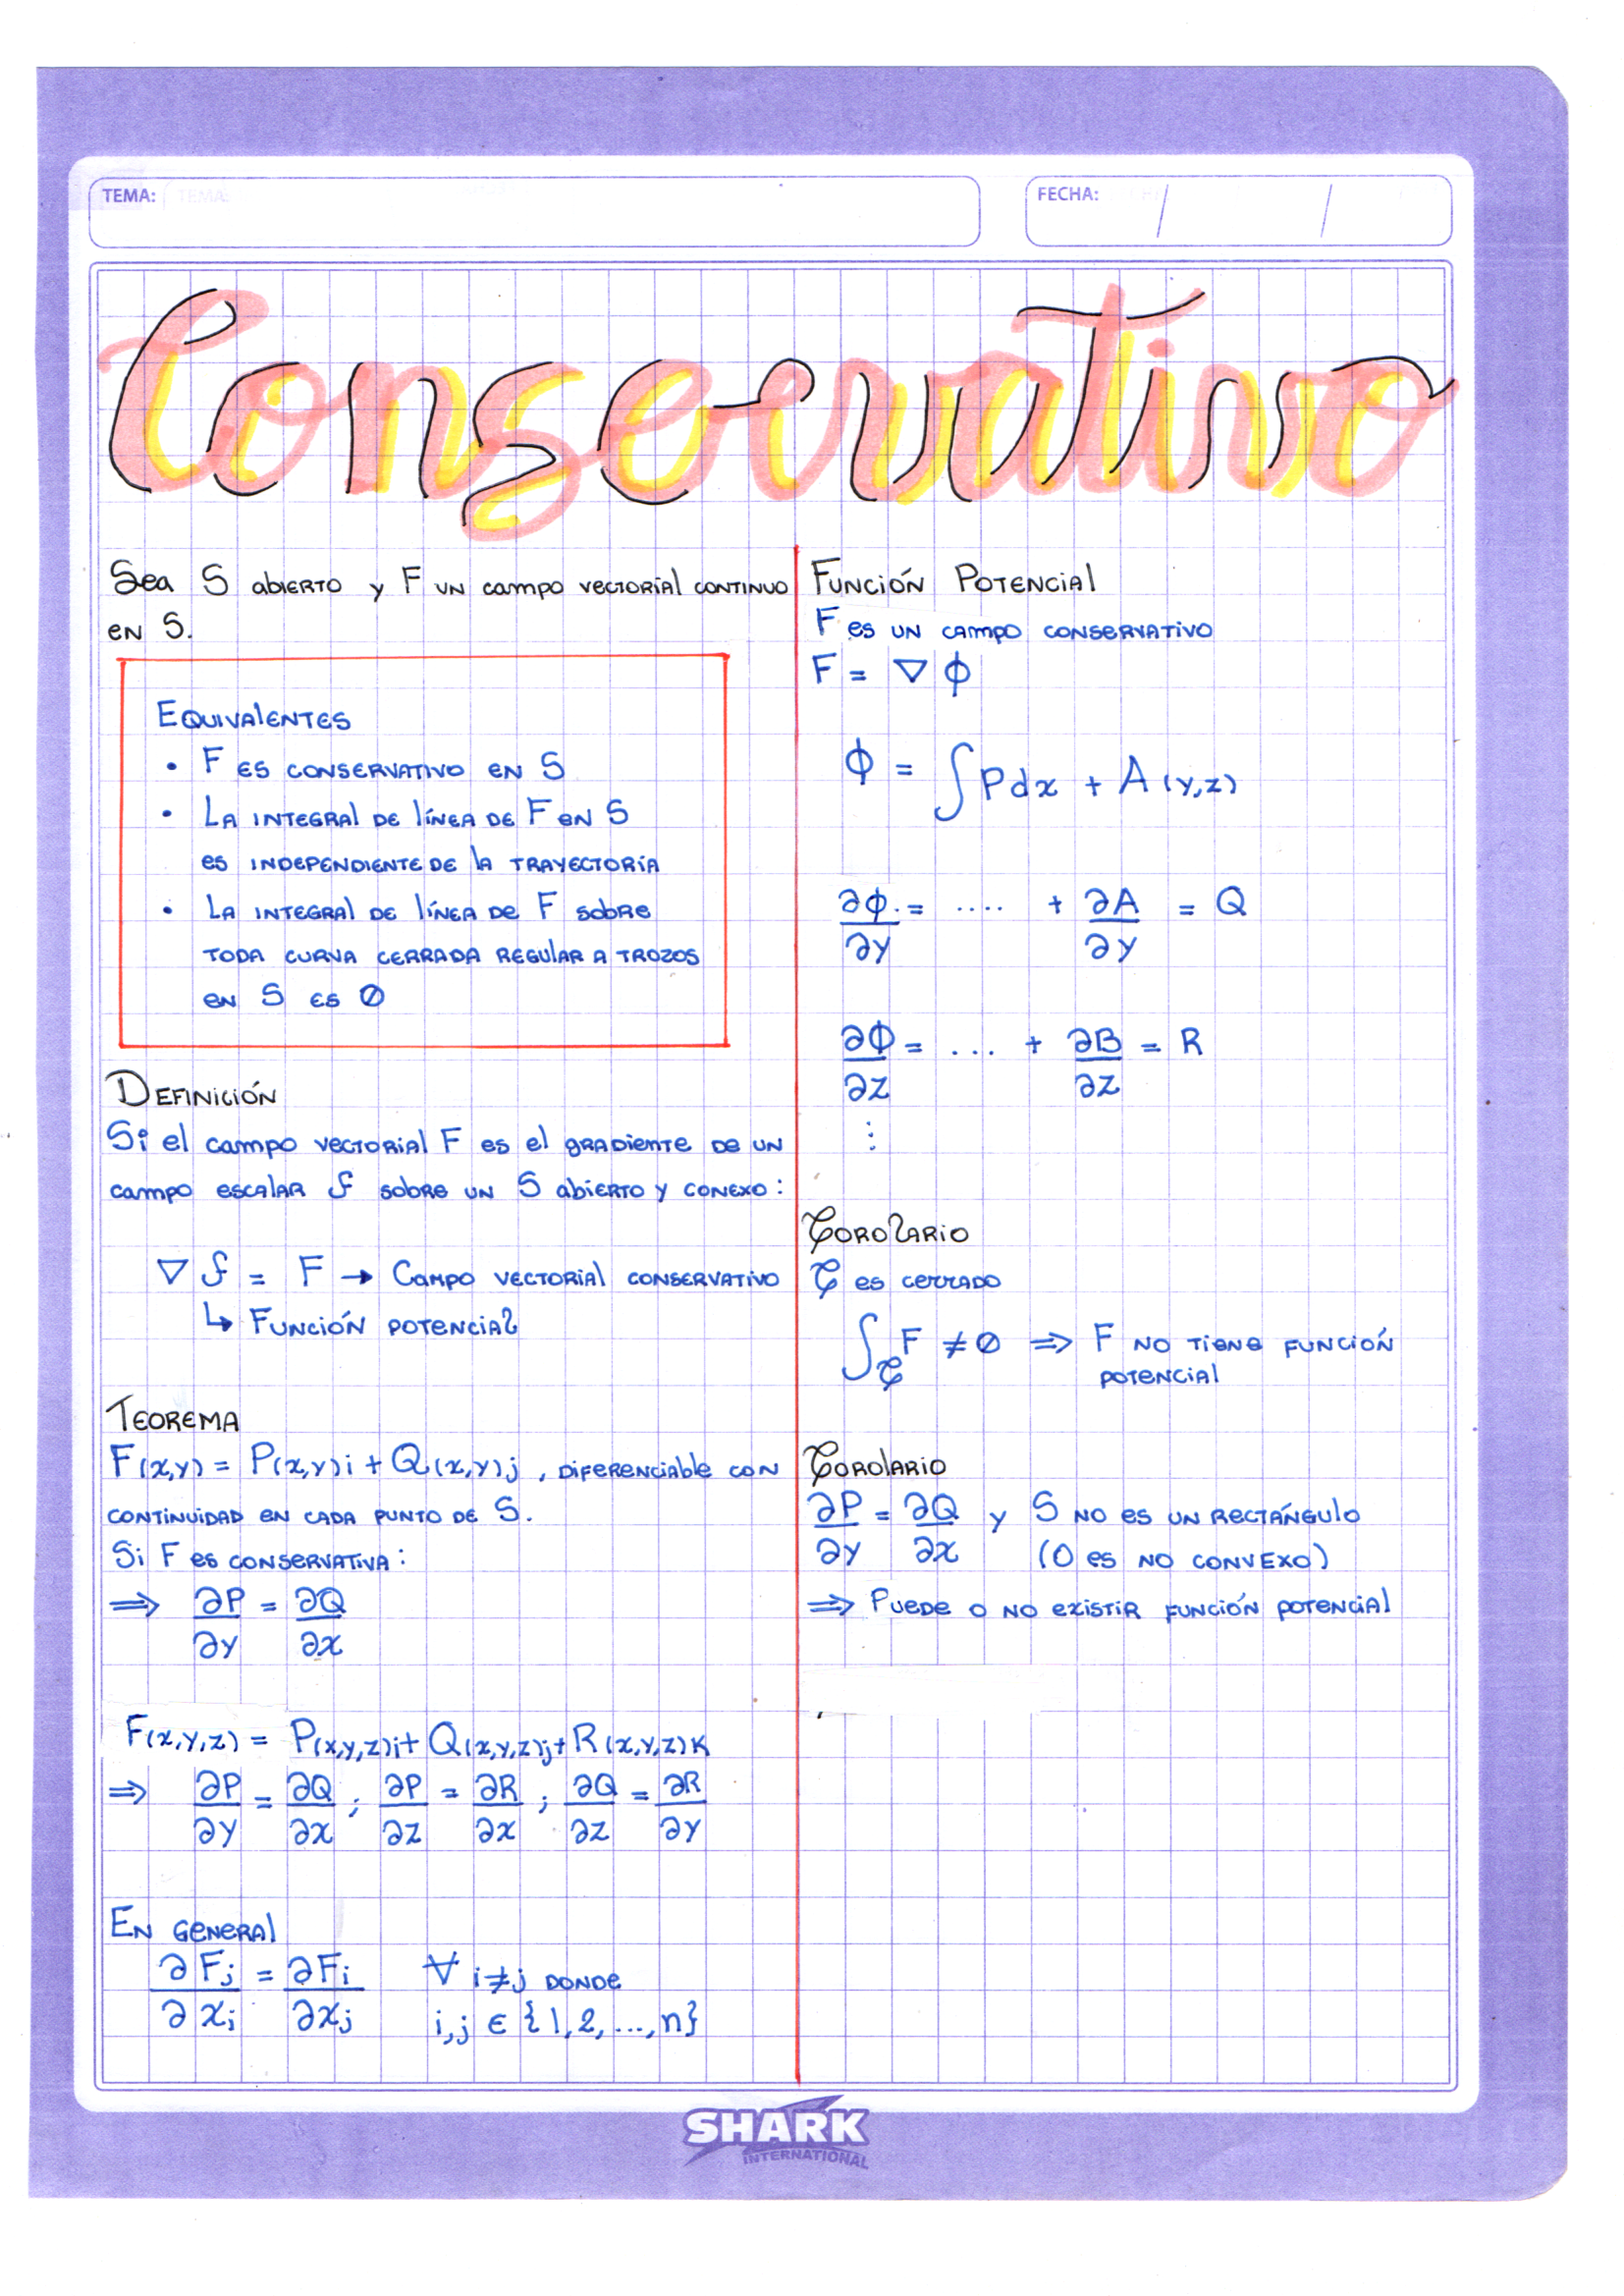 TEMA:
FECHA: / /
Conservativo
Sea S abierto y F un campo vectorial continuo
en S.
Equivalentes
• F es conservativo en S
• La integral de línea de F en S
es independiente de la trayectoria
• La integral de línea de F sobre
toda curva cerrada regular a trozos
en S es 0
Definición
Si el campo vectorial F es el gradiente de un
campo escalar f sobre un S abierto y conexo:
∇ f = F → Campo vectorial conservativo
↳ Función potencial
Teorema
F(x,y) = P(x,y)i + Q(x,y)j , diferenciable con
continuidad en cada punto de S.
Si F es conservativa:
⇒ ∂P/∂y = ∂Q/∂x
F(x,y,z) = P(x,y,z)i + Q(x,y,z)j + R(x,y,z)k
⇒ ∂P/∂y = ∂Q/∂x ; ∂P/∂z = ∂R/∂x ; ∂Q/∂z = ∂R/∂y
En general
∂Fj/∂xi = ∂Fi/∂xj ∀ i≠j donde
i,j ∈ {1,2,...,n}
Función Potencial
F es un campo conservativo
F = ∇ ϕ
ϕ = ∫ P dx + A(y,z)
∂ϕ/∂y = .... + ∂A/∂y = Q
∂ϕ/∂z = ... + ∂B/∂z = R
⋮
Corolario
C es cerrado
∫C F ≠ 0 ⇒ F no tiene función
potencial
Corolario
∂P/∂y = ∂Q/∂x y S no es un rectángulo
(O es no convexo)
⇒ Puede o no existir función potencial
SHARK
INTERNATIONAL